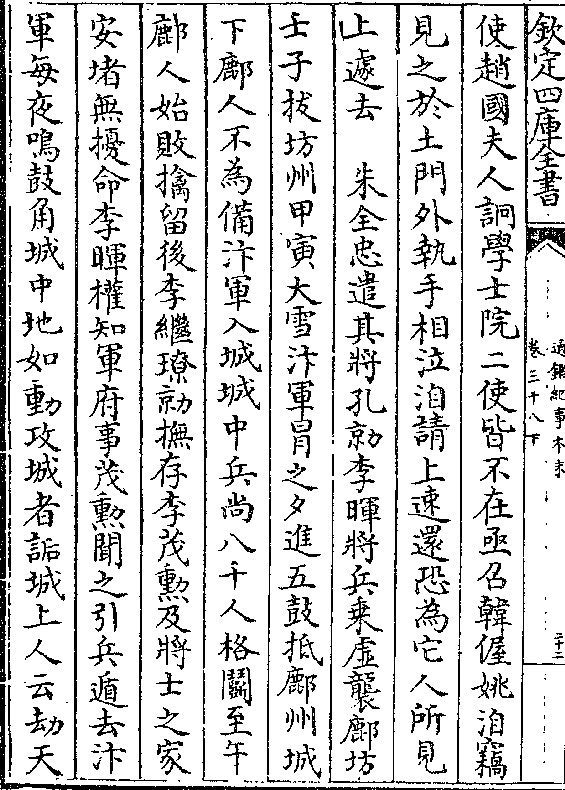 欽定四庫全書
通鑑紀事本末
卷三十八下
三十二
使趙國夫人詗學士院二使皆不在亟召韓偓姚洎竊
見之於土門外執手相泣洎請上速還恐為它人所見
上遽去　朱全忠遣其將孔勍李暉將兵乗虛襲鄜坊
壬子拔坊州甲寅大雪汴軍冒之夕進五鼓抵鄜州城
下鄜人不為備汴軍入城城中兵尚八千人格鬭至午
鄜人始敗擒留後李繼璙勍撫存李茂勲及將士之家
安堵無擾命李暉權知軍府事茂勲聞之引兵遁去汴
軍每夜鳴鼓角城中地如動攻城者詬城上人云劫天